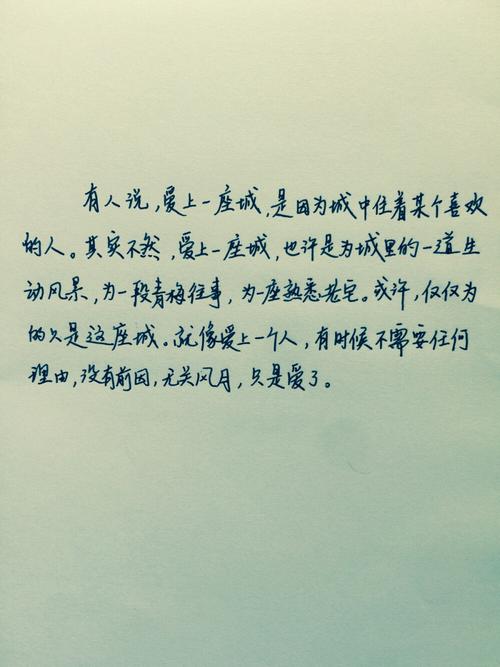 有人说，爱上一座城，是因为城中住着某个喜欢
的人。其实不然，爱上一座城，也许是为城里的一道生
动风景，为一段青梅往事，为一座熟悉老宅。或许，仅仅为
的只是这座城。就像爱上一个人，有时候不需要任何
理由，没有前因，无关风月，只是爱了。